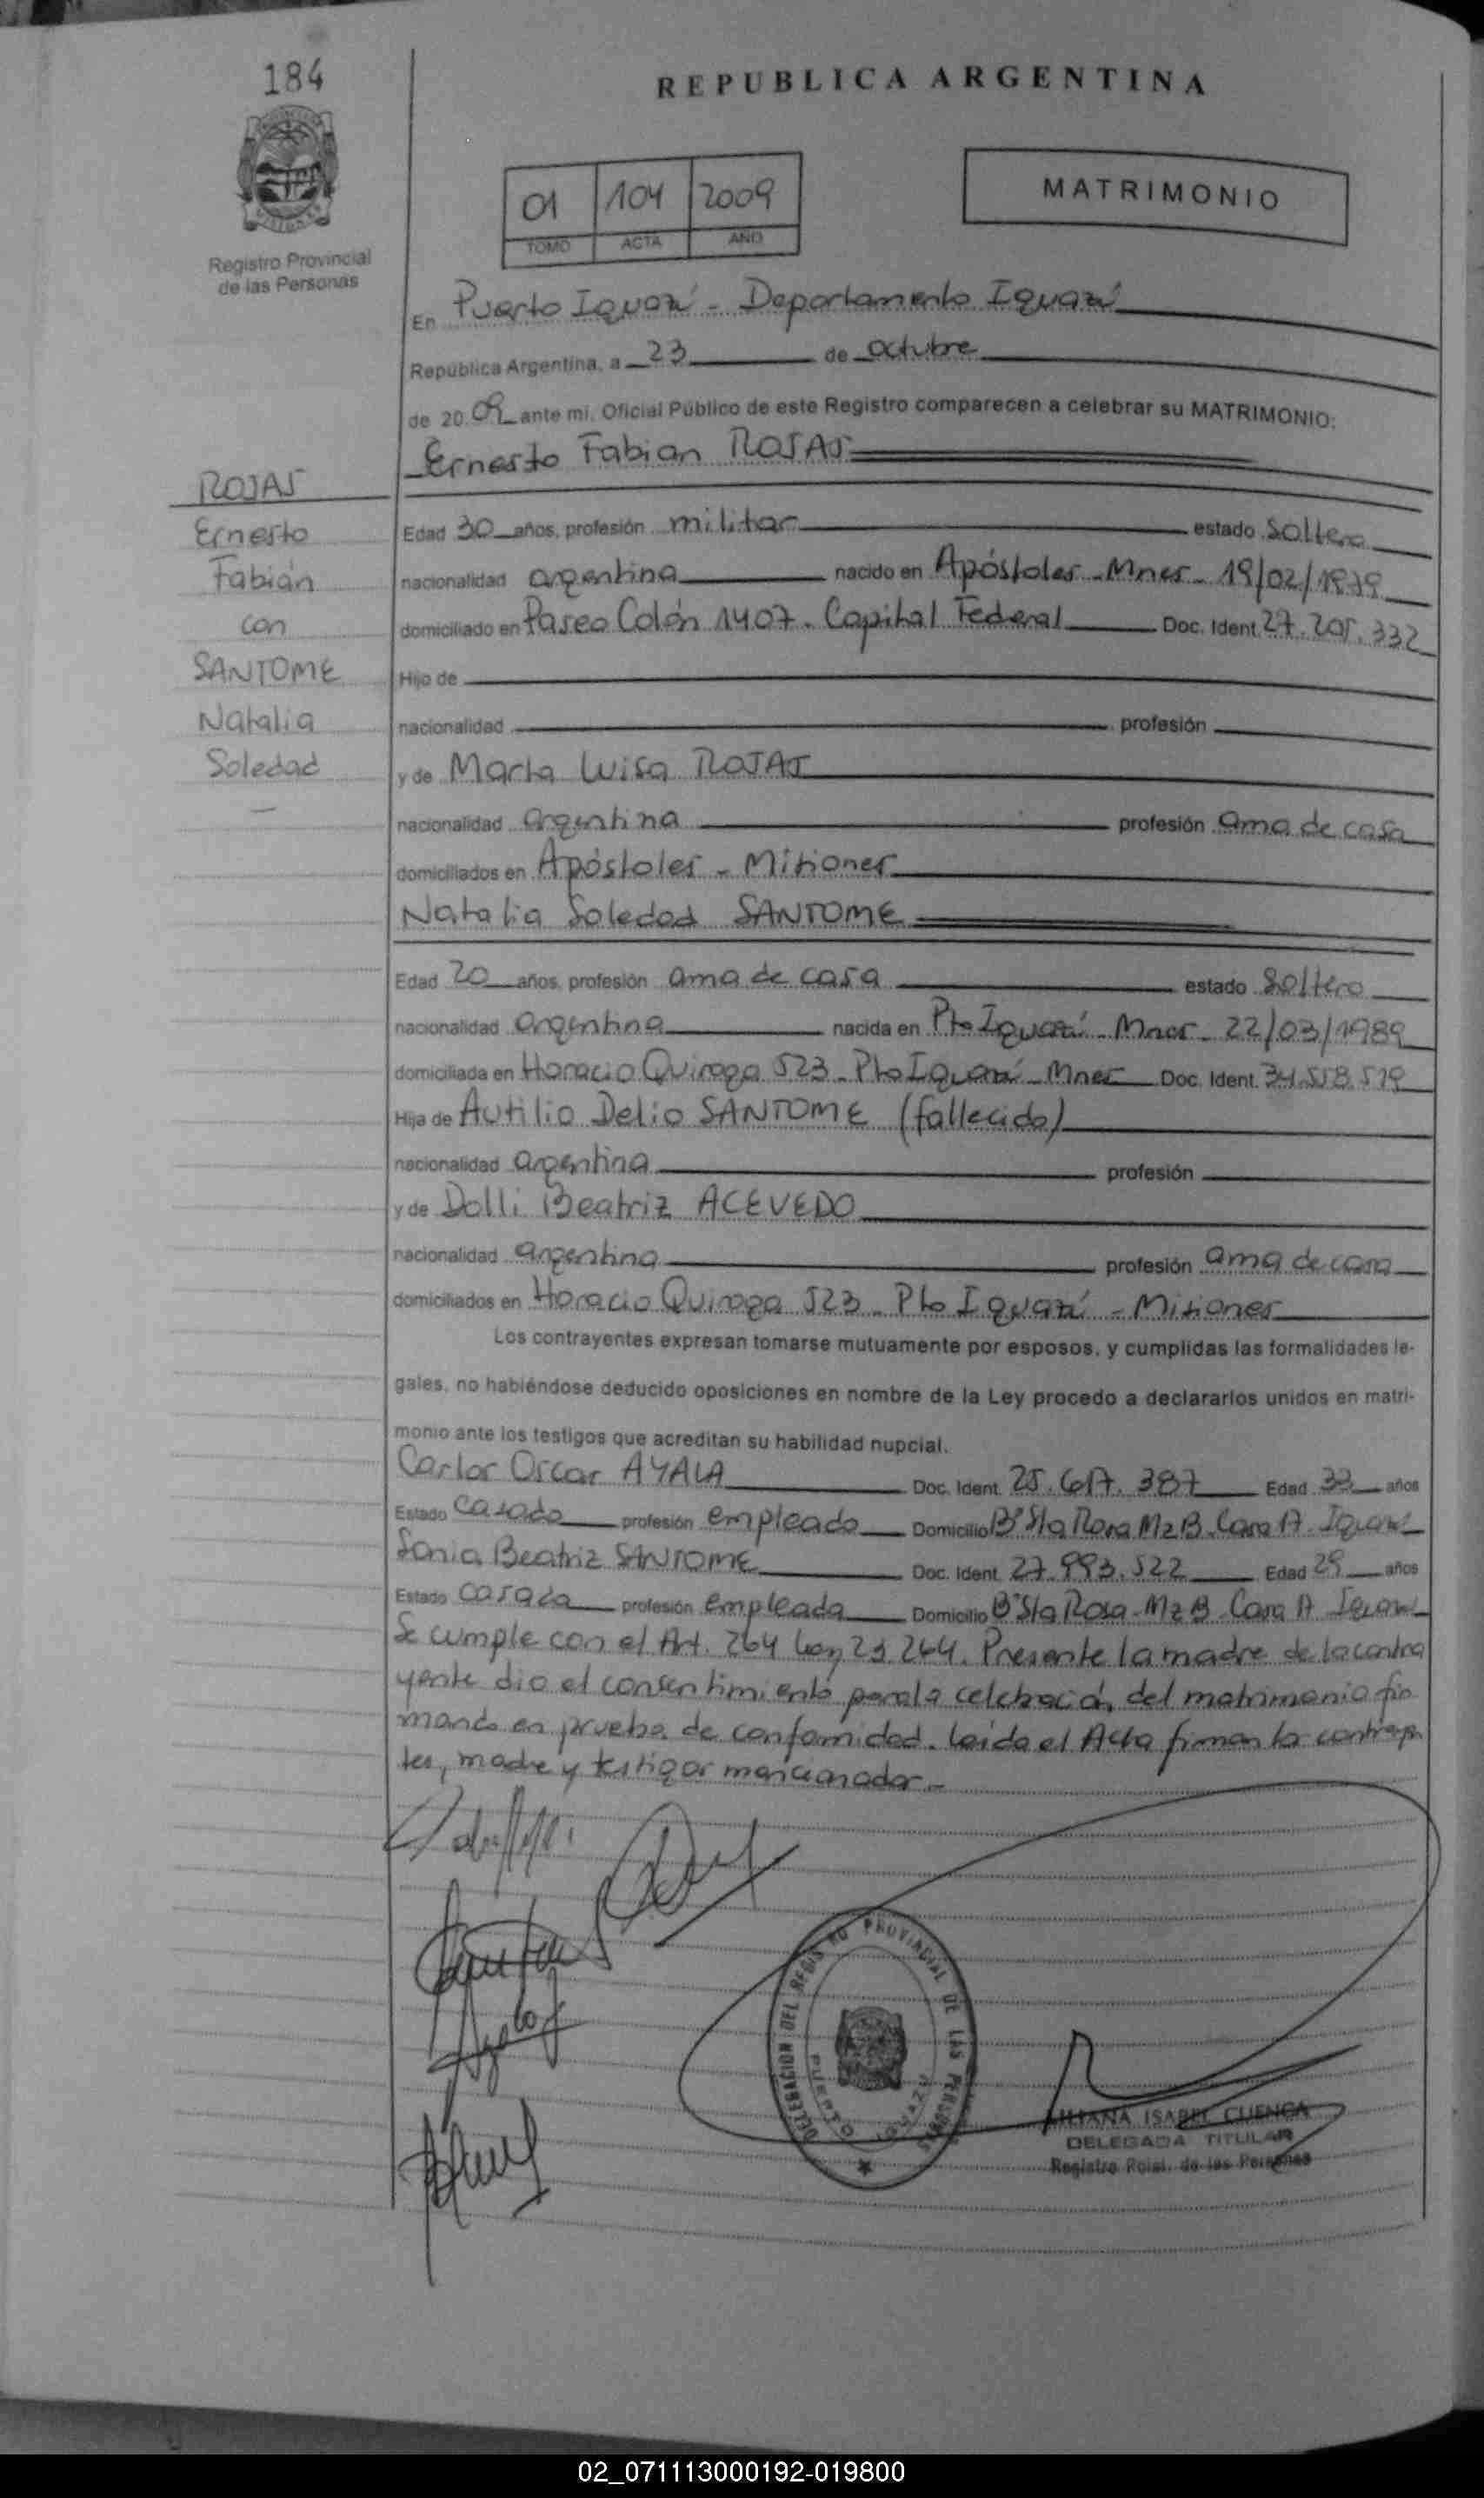 184
REPUBLICA ARGENTINA
Registro Provincial
de las Personas
01 104 2009
TOMO ACTA AÑO
MATRIMONIO
En Puerto Iguazú - Departamento Iguazú
República Argentina, a 23 de octubre
de 20 09 ante mi, Oficial Público de este Registro comparecen a celebrar su MATRIMONIO:
Ernesto Fabian ROJAS
ROJAS
Ernesto
Fabián
con
SANTOME
Natalia
Soledad
Edad 30 años, profesión militar estado Soltero
nacionalidad argentina nacido en Apóstoles - Mnes - 19/02/1979
domiciliado en Paseo Colón 1407 - Capital Federal Doc. Ident. 27.205.332
Hijo de
nacionalidad profesión
y de Marta Luisa ROJAS
nacionalidad argentina profesión ama de casa
domiciliados en Apóstoles - Misiones
Natalia Soledad SANTOME
Edad 20 años, profesión ama de casa estado Soltero
nacionalidad argentina nacida en Pto Iguazú - Mnes - 22/03/1989
domiciliada en Horacio Quiroga 523 - Pto Iguazú - Mnes Doc. Ident. 34.558.519
Hija de Autilio Delio SANTOME (fallecido)
nacionalidad argentina profesión
y de Dolli Beatriz ACEVEDO
nacionalidad argentina profesión ama de casa
domiciliados en Horacio Quiroga 523 - Pto Iguazú - Misiones
Los contrayentes expresan tomarse mutuamente por esposos, y cumplidas las formalidades le-
gales, no habiéndose deducido oposiciones en nombre de la Ley procedo a declararlos unidos en matri-
monio ante los testigos que acreditan su habilidad nupcial.
Carlos Oscar AYALA Doc. Ident. 25.617.387 Edad 33 años
Estado casado profesión empleado Domicilio Bº Sta Rosa Mz B - Casa A - Iguazú
Sonia Beatriz SANTOME Doc. Ident. 27.993.522 Edad 29 años
Estado casada profesión empleada Domicilio Bº Sta Rosa - Mz B - Casa A Iguazú
Se cumple con el Art. 264 Ley 23.264. Presente la madre de la contra
yente dio el consentimiento para la celebración del matrimonio fir
mando en prueba de conformidad. Leída el Acta firman los contrayen
tes, madre y testigos mencionados.-
DELEGACION DEL REGISTRO PROVINCIAL DE LAS PERSONAS
PUERTO IGUAZU
LILIANA ISABEL CUENCA
DELEGADA TITULAR
Registro Pcial. de las Personas
02_071113000192-019800